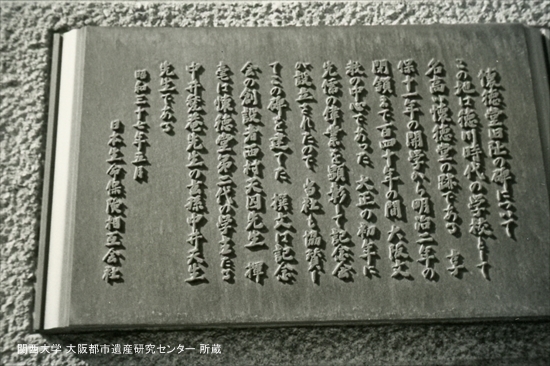 懐徳堂旧阯の碑について
この地は徳川時代の学校として
名高い懐徳堂の跡である 享
保十一年の開学から明治二年の
閉鎖まで百四十年の間 大阪文
教の中心であった 大正の初年に
先儒の偉業を顕彰して記念会
が設立されたので 当社も協力し
てこの碑を建てた 撰文は記念
会の創設者西村天囚先生 揮
毫は懐徳堂第二代の学主たる
中井甃庵先生の玄孫中井天生
先生である
昭和三十七年五月
日本生命保険相互会社
関西大学 大阪都市遺産研究センター 所蔵